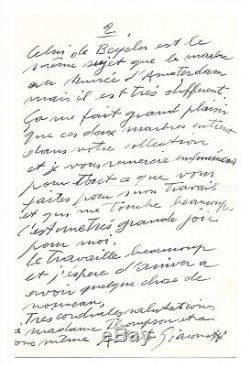 2
Celui de Beyeler est le
même sujet que le marbre
au Musée d'Amsterdam
mais il est très différent
Ça me fait grand plaisir
que ces deux marbres entrent
dans votre collection
et je vous remercie infiniment
pour tout ce que vous
faites pour mon travail
et qui me touche beaucoup.
C'est une très grande joie
pour moi.
Je travaille beaucoup
et j'espère d'arriver à
avoir quelque chose de
nouveau.
Très cordiales salutations
à madame Thompson et à
vous même Alberto Giacometti
ebay